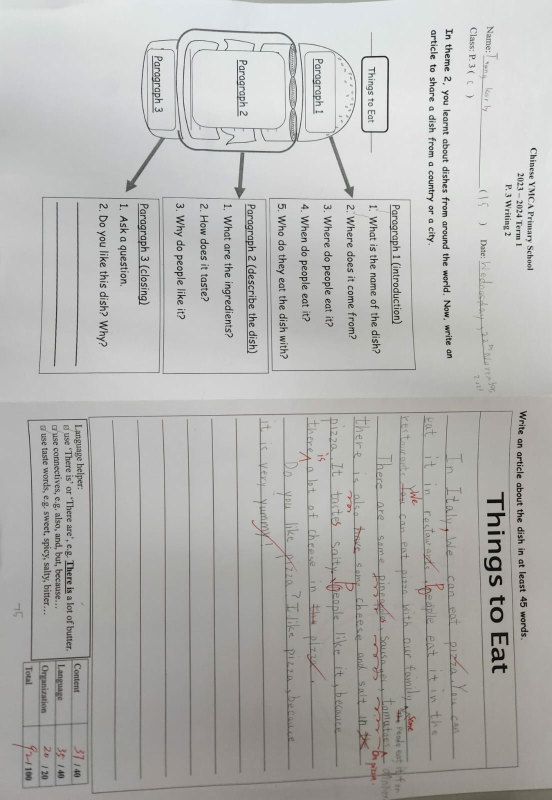 Chinese YMCA Primary School
2023 – 2024 Term 1
P.3 Writing 2
Name: (15) Date: Wednesday, 22
Class: P. 3 ( C )
In theme 2, you learnt about dishes from around the world. Now, write an
article to share a dish from a country or a city.
Things to Eat
Paragraph 1
Paragraph 2
Paragraph 3
Paragraph 1 (introduction)
1. What is the name of the dish?
2. Where does it come from?
3. Where do people eat it?
4. When do people eat it?
5. Who do they eat the dish with?
Paragraph 2 (describe the dish)
1. What are the ingredients?
2. How does it taste?
3. Why do people like it?
Paragraph 3 (closing)
1. Ask a question.
2. Do you like this dish? Why?
Write an article about the dish in at least 45 words.
Things to Eat
In Italy, We can eat pizza. You can
eat it in restaurant. People eat it in the
restaurant. We can eat pizza with our family. Some
There are some pineapple, sausages, tomatoes on pizza.
there is also have some cheese and salt in
pizza. It tastes salty. People like it, because
there is a lot of cheese in pizza.
Do you like pizza? I like pizza, because
it is very yummy.
Language helper:
use 'There is' or 'There are', e.g. There is a lot of butter.
use connectives, e.g. also, and, but, because…
use taste words, e.g. sweet, spicy, salty, bitter…
Content 37 / 40
Language 35 / 40
Organization 20 / 20
Total 92 / 100
75